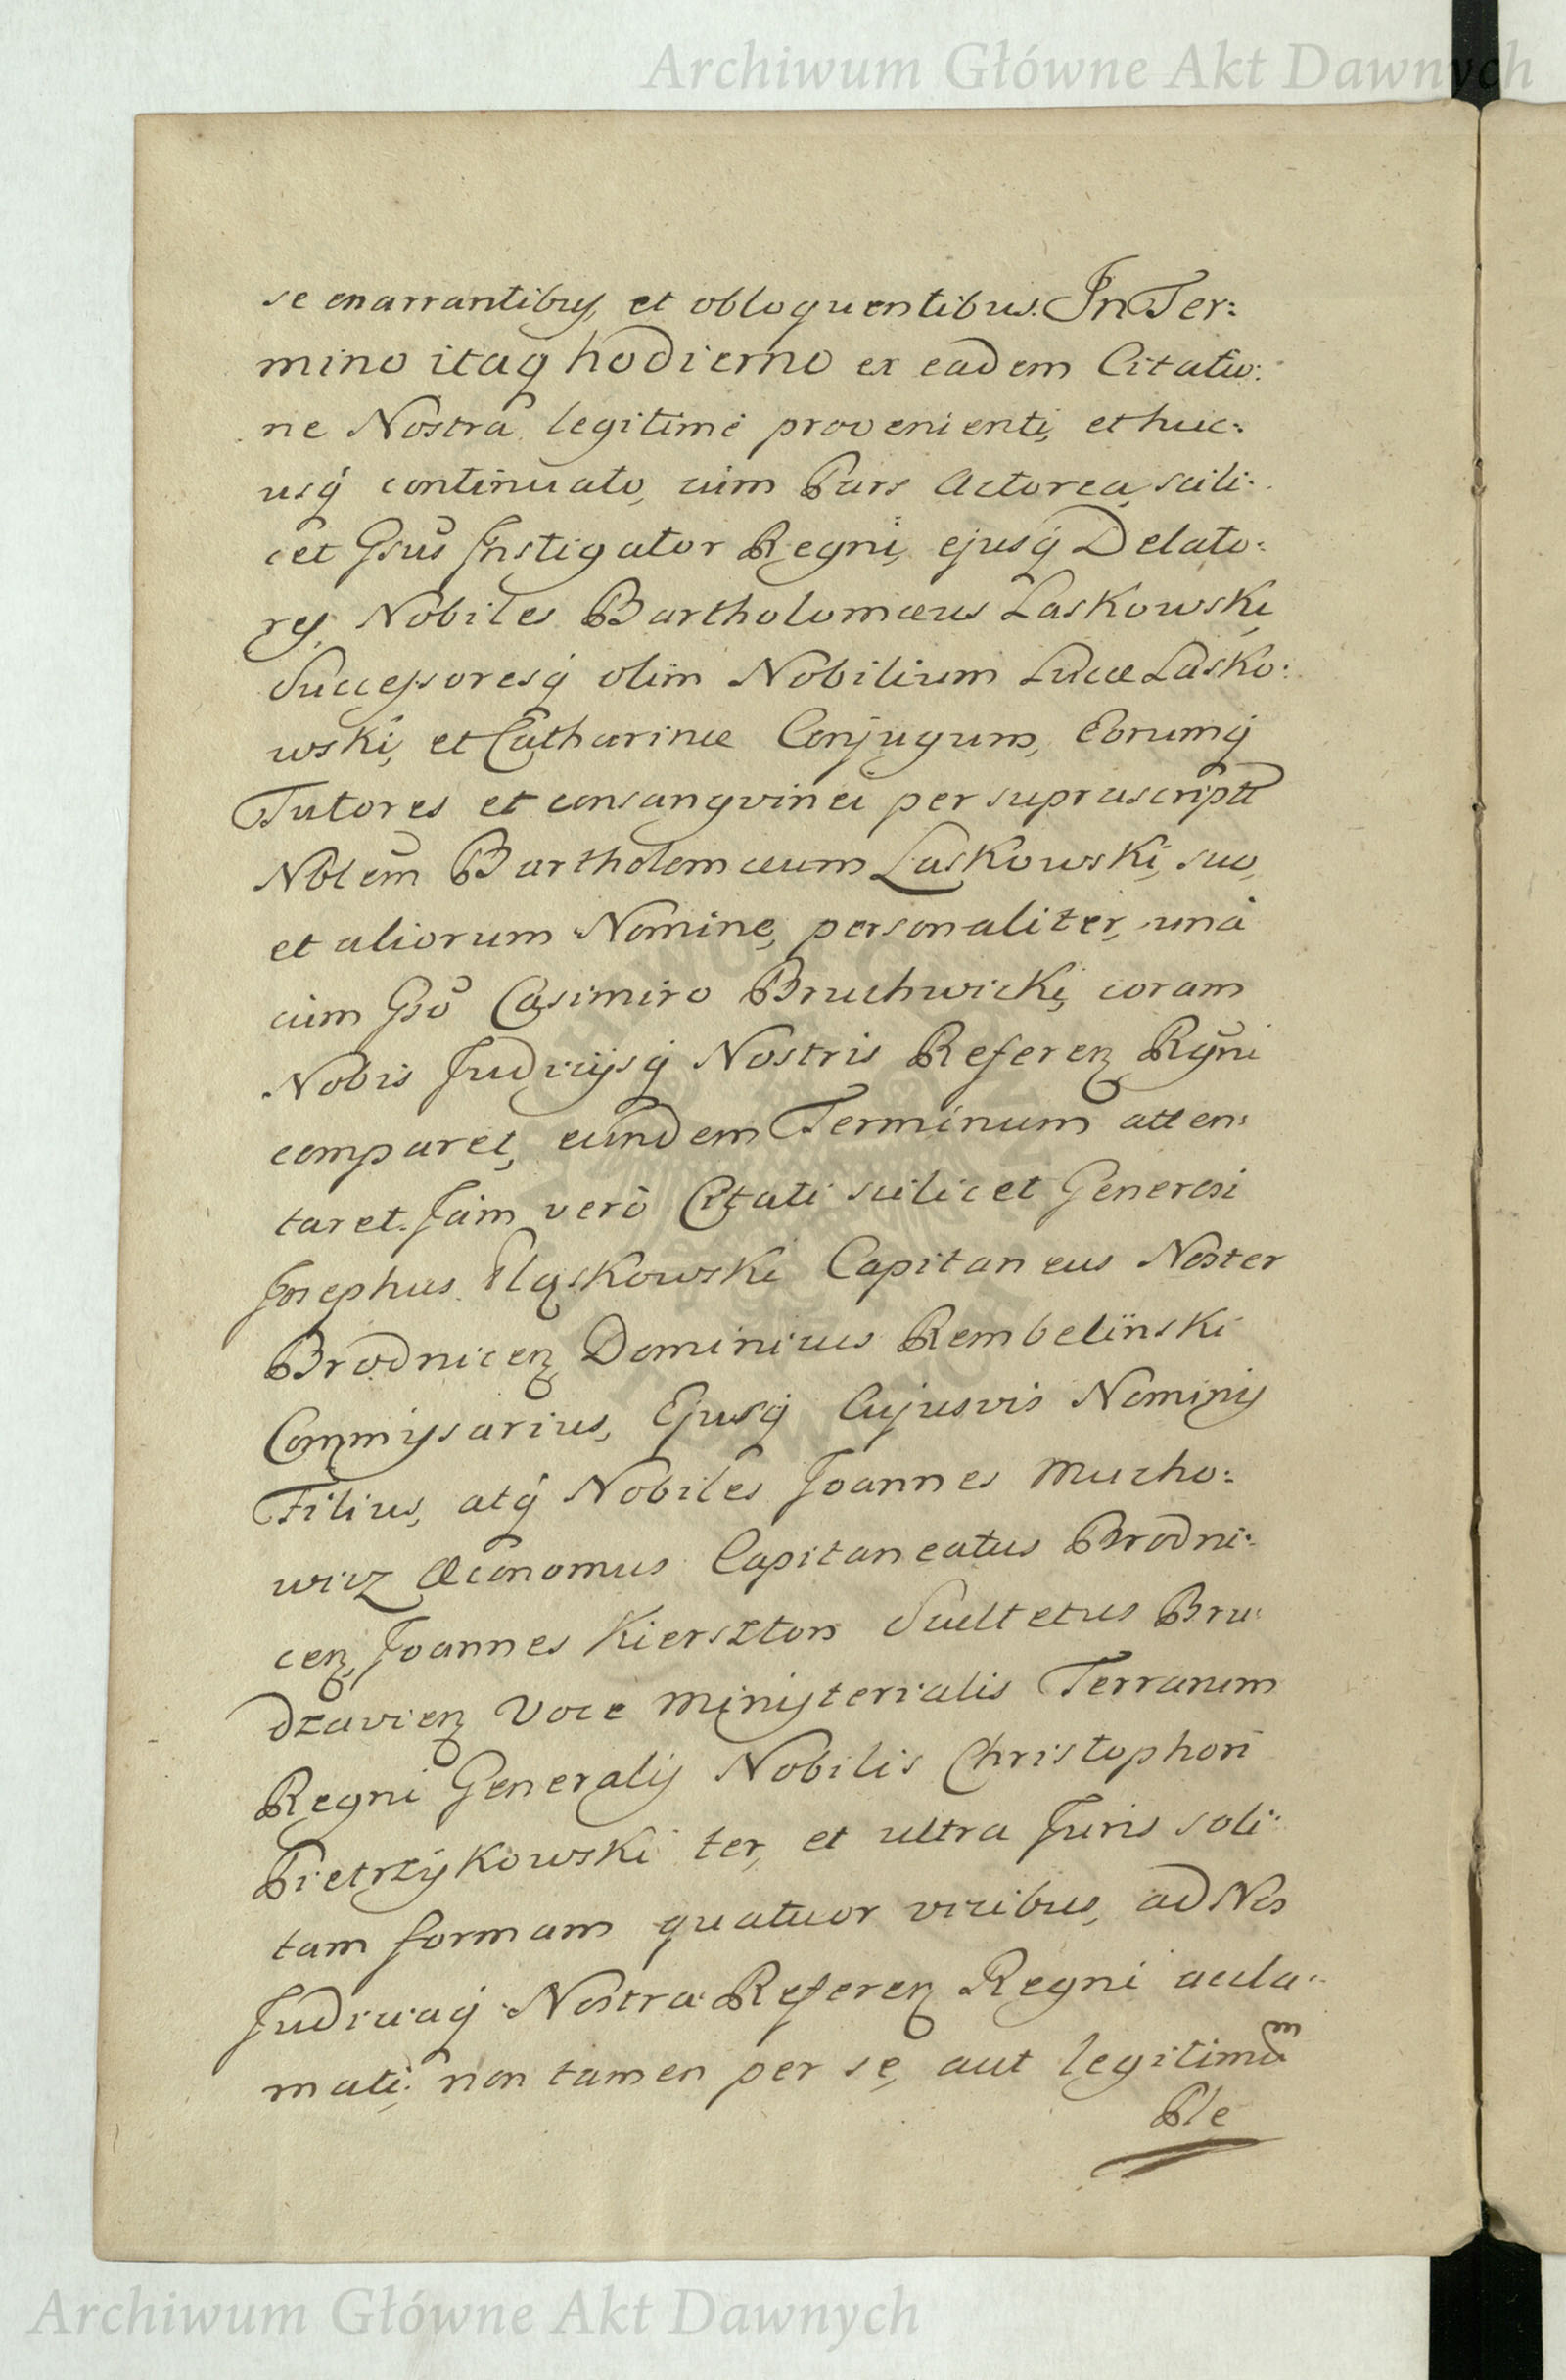 Archiwum Główne Akt Dawnych
se enarrantibus, et obloquentibus. In Ter:
mino itaq hodierno ex eadem Citatio:
ne Nostrâ legitimè provenienti, et huc:
usq continuato, cùm Pars Actorea, scili:
cet Gsus Instigator Regni, ejusq Delato:
res, Nobiles Bartholomæus Laskowski
Successoresq olim Nobilium Lucæ Lasko:
wski, et Catharinæ Conjugum, Eorumq
Tutores et consangvinei per suprascriptt
Noblem Bartholomæum Laskowski, suo,
et aliorum Nomine, personaliter, unà
cùm Gso Casimiro Bruchwicki, coram
Nobis Judicijsq Nostris Referen Rgni
comparet, eundem Terminum atten:
taret. Jam verò Citati scilicet Generosi
Josephus Pląskowski Capitaneus Noster
Brodnicen Dominicus Rembelinski
Commissarius, Ejusq Cujusvis Nominis
Filius, atq Nobiles Joannes Mucho:
wicz Œconomus Capitaneatus Brodni:
cen, Joannes Kierszton Scultetus Bru:
dzavien Voce Ministerialis Terrarum
Regni Generalis Nobilis Christophori
Pietrzykowski ter, et ultra Juris soli:
tam formam quatuor vicibus, ad Nos
Judiciaq Nostra Referen Regni accla:
mati, non tamen per se, aut legitimũ m
Ple
Archiwum Główne Akt Dawnych